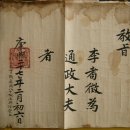 敎旨
李耉徵為
通政大夫
者
康熙二十七年二月初六日